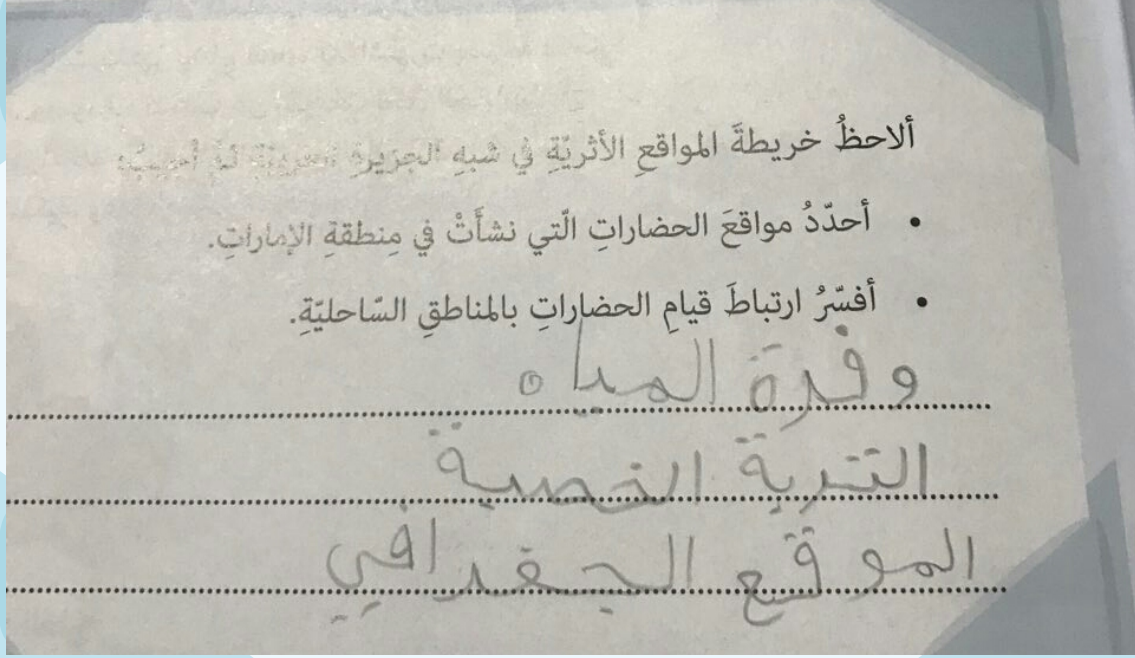 ألاحظُ خريطةَ المواقعِ الأثريّةِ في شبهِ الجزيرةِ العربيّةِ ثمّ أجيبُ:
• أحدّدُ مواقعَ الحضاراتِ الّتي نشأَتْ في مِنطقةِ الإماراتِ.
• أفسّرُ ارتباطَ قيامِ الحضاراتِ بالمناطقِ السّاحليّةِ.
وفرة المياه
التربة الخصبة
الموقع الجغرافي